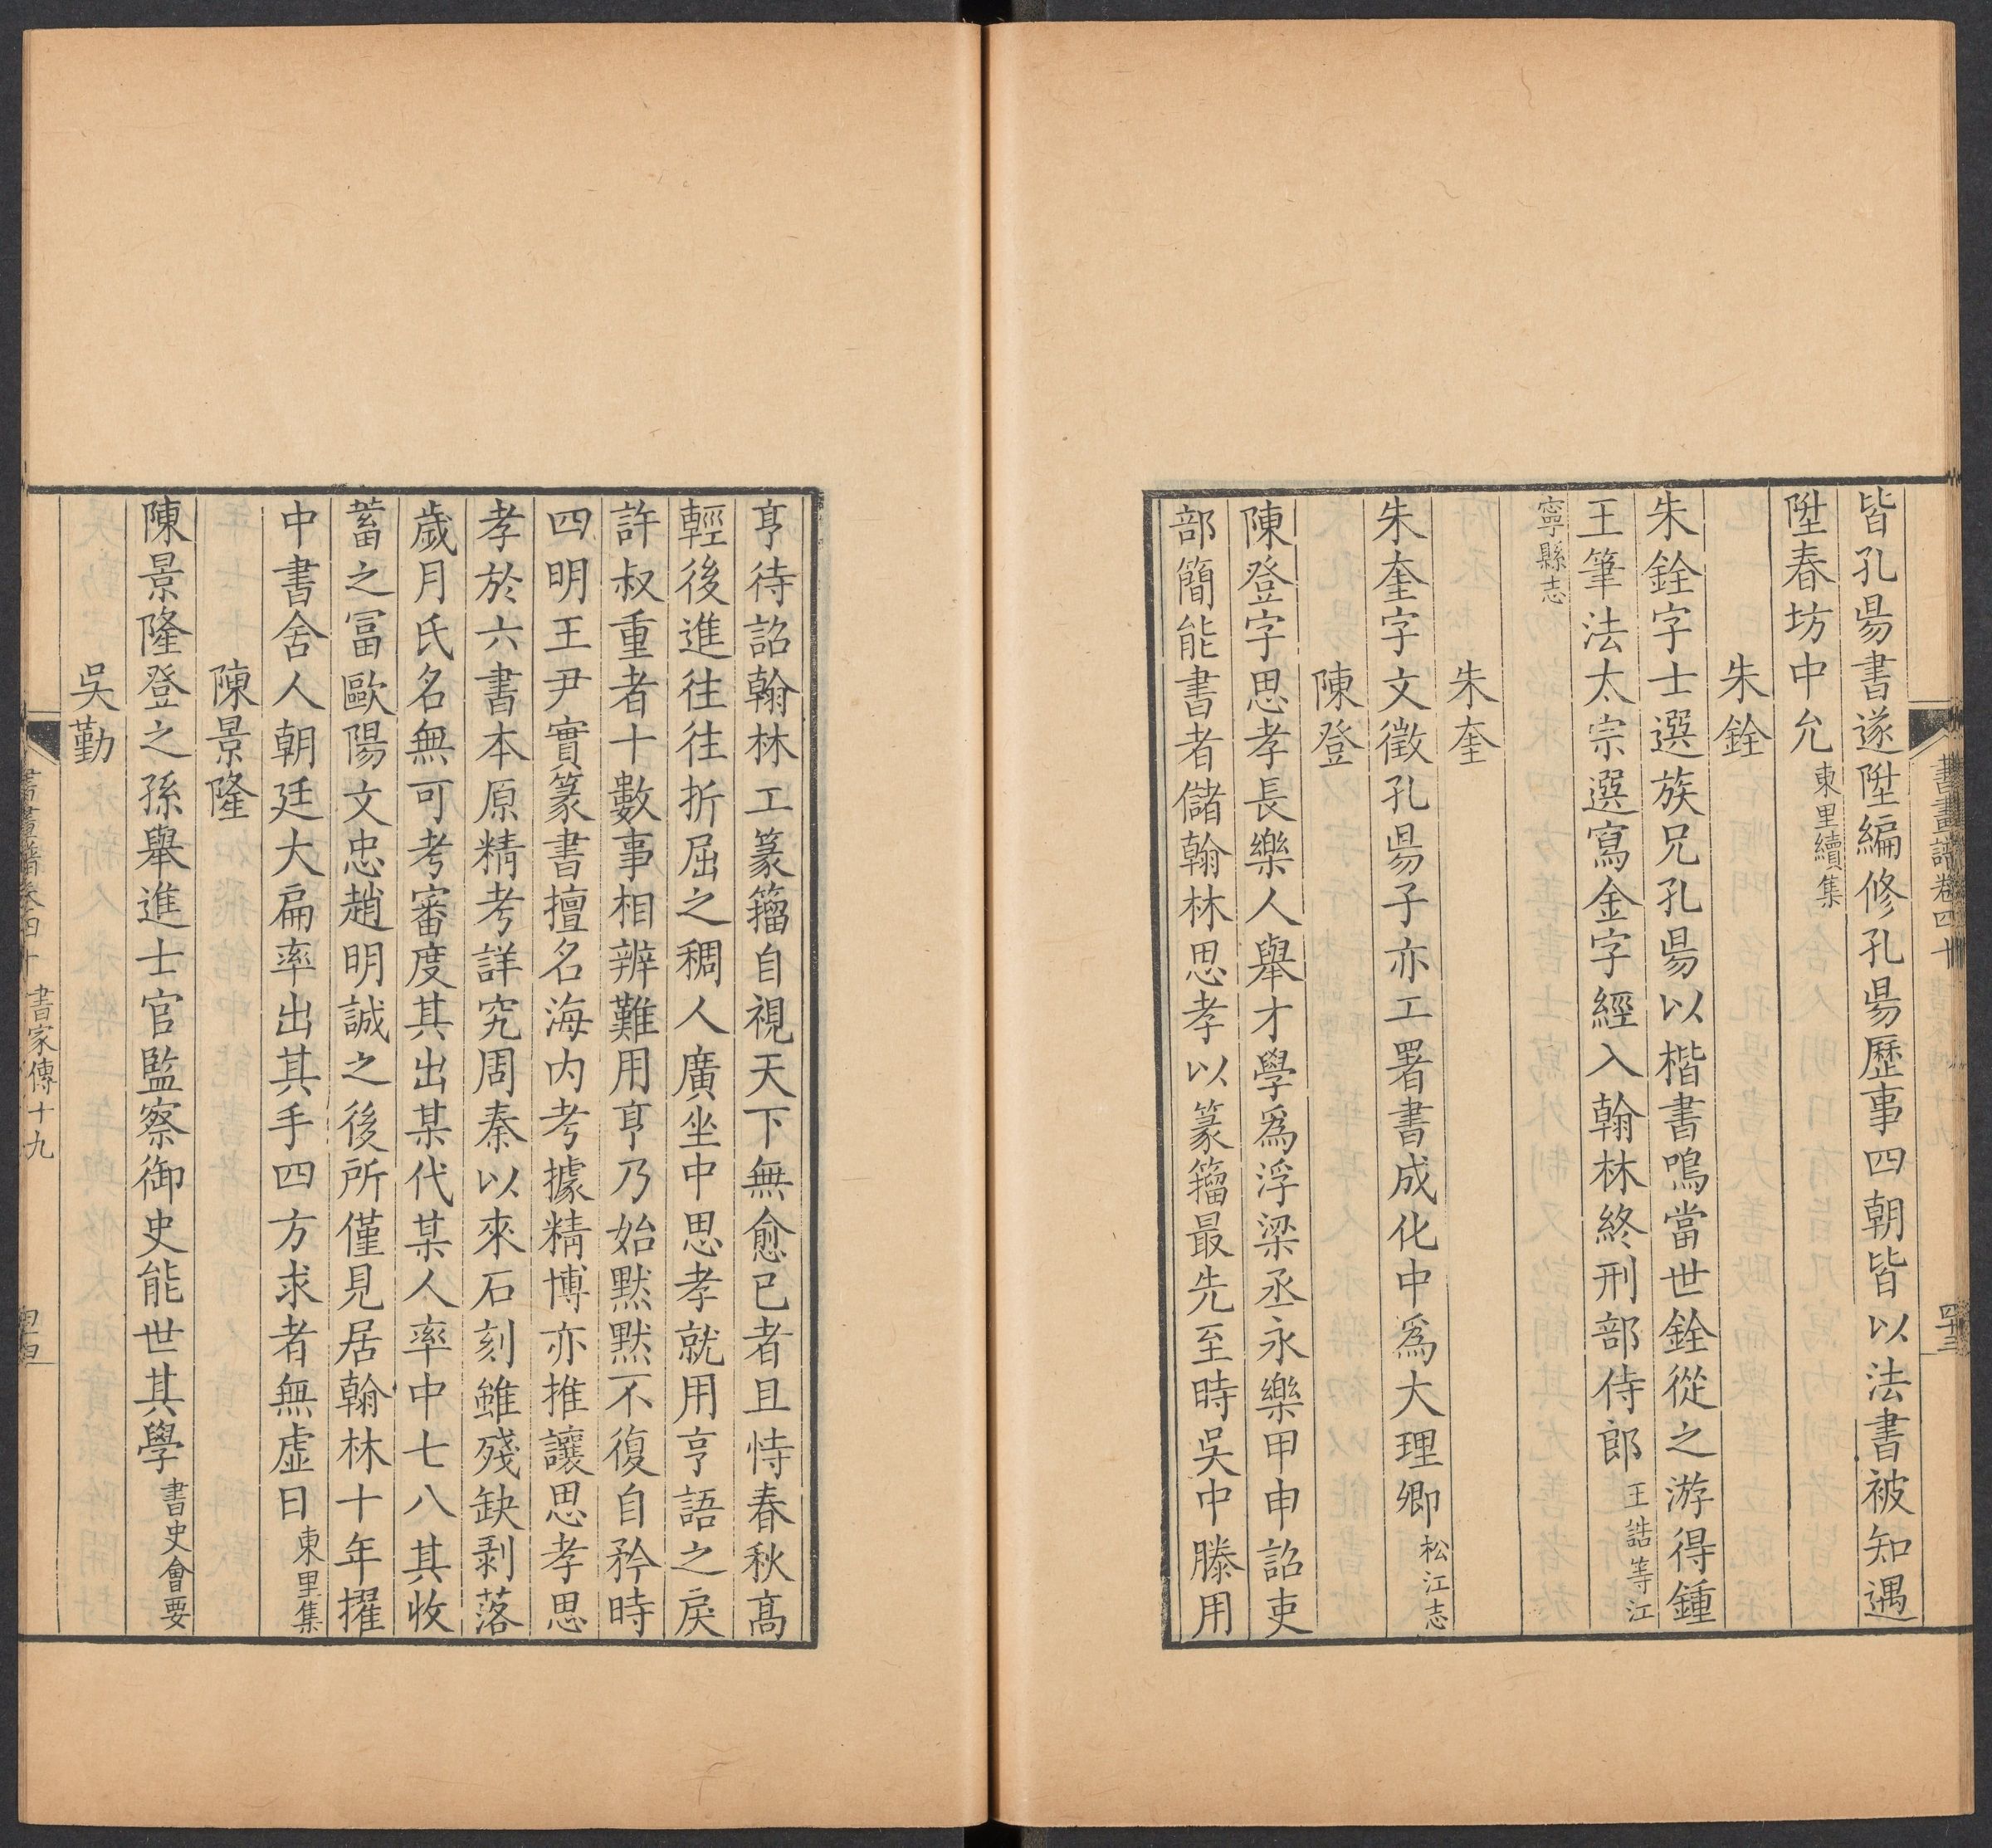 書畫譜卷四十
四十三
皆孔昜書遂陞編修孔昜歷事四朝皆以法書被知遇
陞春坊中允東里續集
朱銓
朱銓字士選族兄孔昜以楷書鳴當世銓從之游得鍾
王筆法太宗選寫金字經入翰林終刑部侍郎王誥等江
寧縣志
朱奎
朱奎字文徵孔昜子亦工署書成化中爲大理卿松江志
陳登
陳登字思孝長樂人舉才學爲浮梁丞永樂甲申詔吏
部簡能書者儲翰林思孝以篆籀最先至時吳中滕用
亨待詔翰林工篆籀自視天下無愈已者且恃春秋高
輕後進往往折屈之稠人廣坐中思孝就用亨語之戾
許叔重者十數事相辨難用亨乃始默默不復自矜時
四明王尹實篆書擅名海内考據精博亦推讓思孝思
孝於六書本原精考詳究周秦以來石刻雖殘缺剥落
歲月氏名無可考審度其出某代某人率中七八其收
蓄之富歐陽文忠趙明誠之後所僅見居翰林十年擢
中書舍人朝廷大扁率出其手四方求者無虚日東里集
陳景隆
陳景隆登之孫舉進士官監察御史能世其學書史會要
吳勤
書畫譜卷四十 書家傳十九